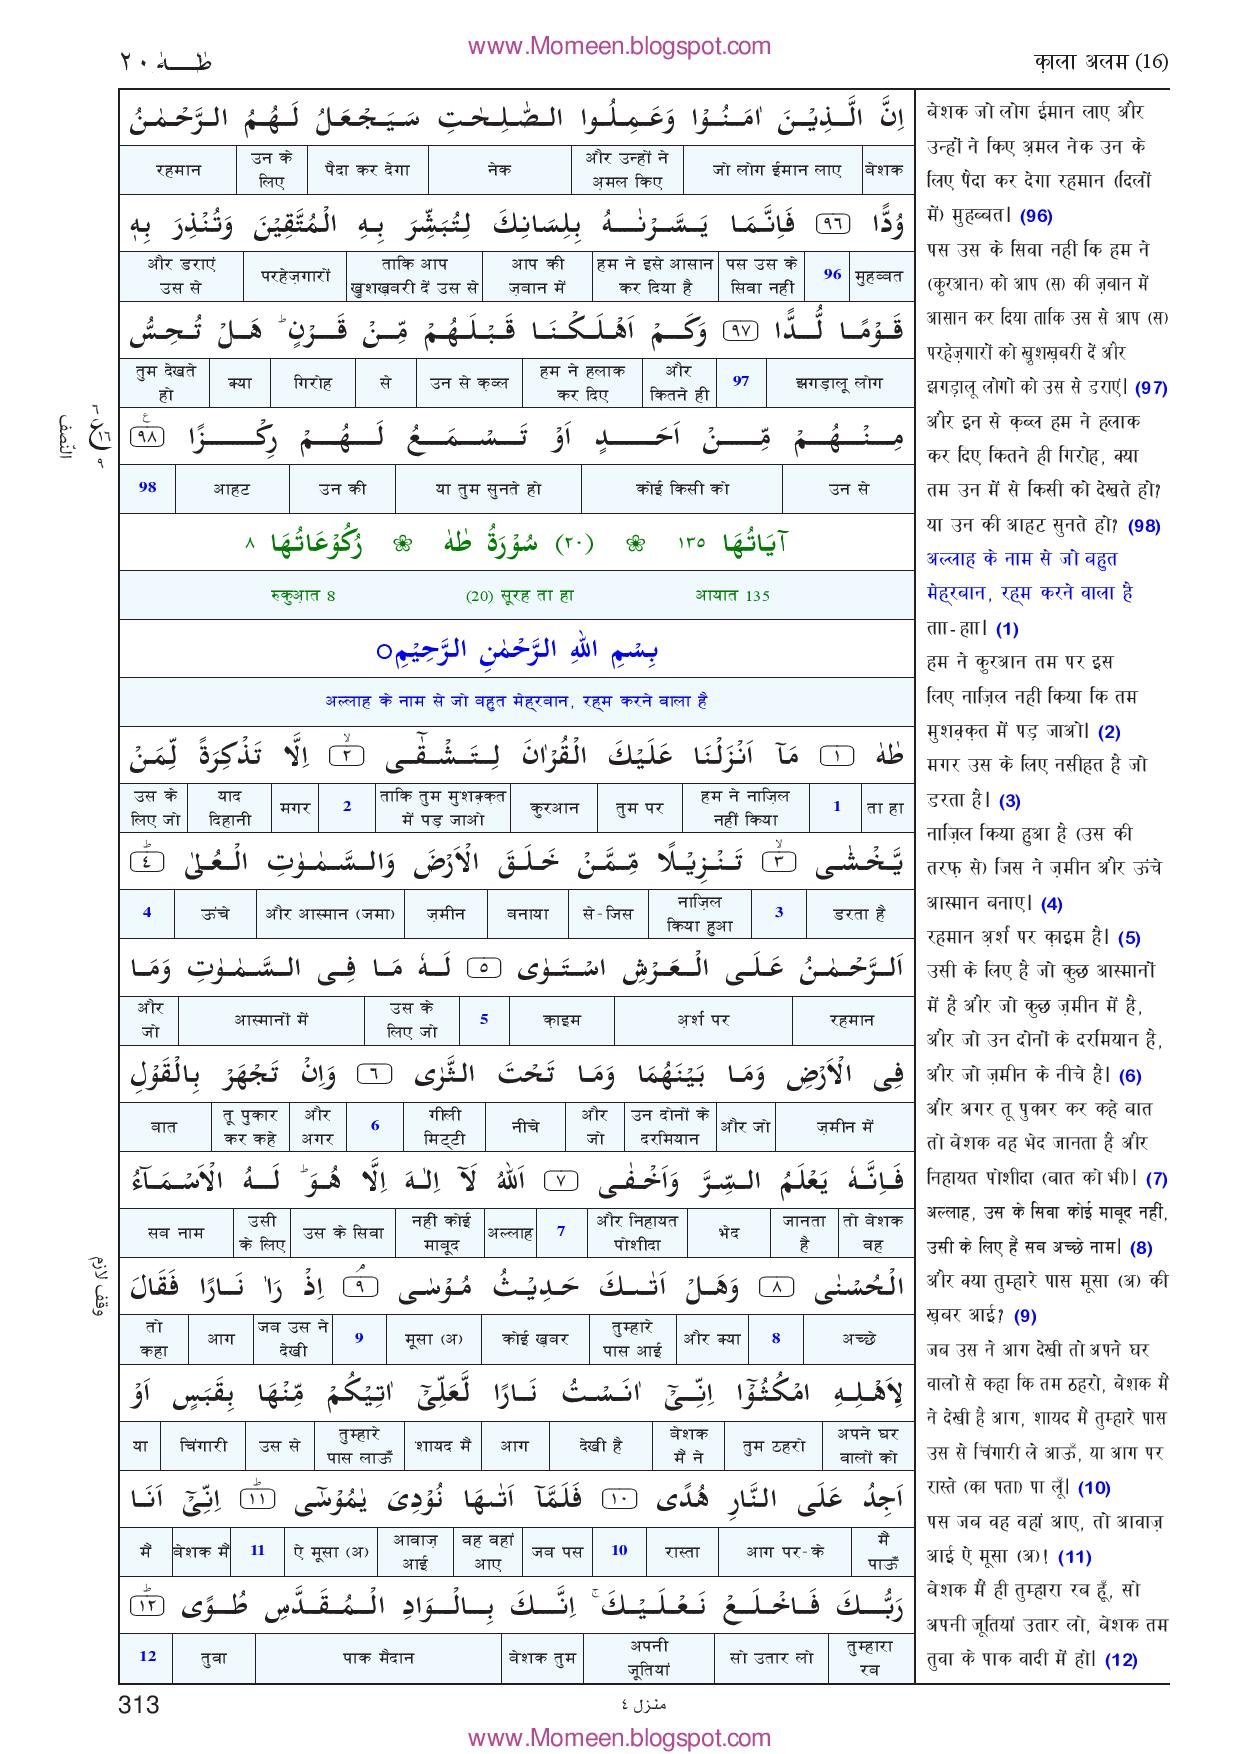 www.Momeen.blogspot.com
طٰـــهٰ ٢٠
क़ाला अलम (16)
اِنَّ الَّذِيْنَ اٰمَنُوْا وَعَمِلُوا الصّٰلِحٰتِ سَيَجْعَلُ لَهُمُ الرَّحْمٰنُ
बेशक जो लोग ईमान लाए और उन्हों ने अ़मल किए नेक पैदा कर देगा उन के लिए रहमान
وُدًّا ٩٦ فَاِنَّمَا يَسَّرْنٰهُ بِلِسَانِكَ لِتُبَشِّرَ بِهِ الْمُتَّقِيْنَ وَتُنْذِرَ بِهٖ
मुहब्बत 96 पस उस के सिवा नहीं हम ने इसे आसान कर दिया है आप की ज़बान में ताकि आप खुशख़बरी दें उस से परहेज़गारों और डराएं उस से
قَوْمًا لُّدًّا ٩٧ وَكَمْ اَهْلَكْنَا قَبْلَهُمْ مِّنْ قَرْنٍ ؕ هَلْ تُحِسُّ
झगड़ालू लोग 97 और कितने ही हम ने हलाक कर दिए उन से क़ब्ल से गिरोह क्या तुम देखते हो
مِنْهُمْ مِّنْ اَحَدٍ اَوْ تَسْمَعُ لَهُمْ رِكْزًا ٩٨
उन से कोई किसी को या तुम सुनते हो उन की आहट 98
آيَاتُهَا ١٣٥ ❀ (٢٠) سُوْرَةُ طٰهٰ ❀ رُكُوْعَاتُهَا ٨
आयात 135 (20) सूरह ता हा रुकुआ़त 8
بِسْمِ اللهِ الرَّحْمٰنِ الرَّحِيْمِ○
अल्लाह के नाम से जो बहुत मेह्‌रबान, रह्‌म करने वाला है
طٰهٰ ١ مَآ اَنْزَلْنَا عَلَيْكَ الْقُرْاٰنَ لِتَشْقٰٓى ٢ اِلَّا تَذْكِرَةً لِّمَنْ
ता हा 1 हम ने नाज़िल नहीं किया तुम पर कुरआन ताकि तुम मुशक़्क़त में पड़ जाओ 2 मगर याद दिहानी उस के लिए जो
يَّخْشٰى ٣ تَنْزِيْلًا مِّمَّنْ خَلَقَ الْاَرْضَ وَالسَّمٰوٰتِ الْعُلٰى ٤
डरता है 3 नाज़िल किया हुआ से-जिस बनाया ज़मीन और आस्मान (जमा) ऊंचे 4
اَلرَّحْمٰنُ عَلَى الْعَرْشِ اسْتَوٰى ٥ لَهٗ مَا فِى السَّمٰوٰتِ وَمَا
रहमान अ़र्श पर क़ाइम 5 उस के लिए जो आस्मानों में और जो
فِى الْاَرْضِ وَمَا بَيْنَهُمَا وَمَا تَحْتَ الثَّرٰى ٦ وَاِنْ تَجْهَرْ بِالْقَوْلِ
ज़मीन में और जो उन दोनों के दरमियान और जो नीचे गीली मिट्टी 6 और अगर तू पुकार कर कहे बात
فَاِنَّهٗ يَعْلَمُ السِّرَّ وَاَخْفٰى ٧ اَللهُ لَآ اِلٰهَ اِلَّا هُوَ ؕ لَهُ الْاَسْمَآءُ
तो बेशक वह जानता है भेद और निहायत पोशीदा 7 अल्लाह नहीं कोई माबूद उस के सिवा उसी के लिए सब नाम
الْحُسْنٰى ٨ وَهَلْ اَتٰىكَ حَدِيْثُ مُوْسٰى ٩ اِذْ رَاٰ نَارًا فَقَالَ
अच्छे 8 और क्या तुम्हारे पास आई कोई ख़बर मूसा (अ) 9 जब उस ने देखी आग तो कहा
لِاَهْلِهِ امْكُثُوْٓا اِنِّيْٓ اٰنَسْتُ نَارًا لَّعَلِّيْٓ اٰتِيْكُمْ مِّنْهَا بِقَبَسٍ اَوْ
अपने घर वालों को तुम ठहरो बेशक मैं ने देखी है आग शायद मैं तुम्हारे पास लाऊँ उस से चिंगारी या
اَجِدُ عَلَى النَّارِ هُدًى ١٠ فَلَمَّآ اَتٰىهَا نُوْدِىَ يٰمُوْسٰى ١١ اِنِّيْٓ اَنَا
मैं पाऊँ आग पर-के रास्ता 10 जब पस वह वहां आए आवाज़ आई ऐ मूसा (अ) 11 बेशक मैं मैं
رَبُّكَ فَاخْلَعْ نَعْلَيْكَ ۚ اِنَّكَ بِالْوَادِ الْمُقَدَّسِ طُوًى ١٢
तुम्हारा रब सो उतार लो अपनी जूतियां बेशक तुम पाक मैदान तुवा 12
ع ١٦ ٩
النّصف
وقف لازم
बेशक जो लोग ईमान लाए और
उन्हों ने किए अ़मल नेक उन के
लिए पैदा कर देगा रहमान (दिलों
में) मुहब्बत। (96)
पस उस के सिवा नहीं कि हम ने
(कुरआन) को आप (स) की ज़बान में
आसान कर दिया ताकि उस से आप (स)
परहेज़गारों को खुशख़बरी दें और
झगड़ालू लोगों को उस से डराएं। (97)
और इन से क़ब्ल हम ने हलाक
कर दिए कितने ही गिरोह, क्या
तम उन में से किसी को देखते हो?
या उन की आहट सुनते हो? (98)
अल्लाह के नाम से जो बहुत
मेह्‌रबान, रह्‌म करने वाला है
ता-हा। (1)
हम ने कुरआन तम पर इस
लिए नाज़िल नहीं किया कि तम
मुशक़्क़त में पड़ जाओ। (2)
मगर उस के लिए नसीहत है जो
डरता है। (3)
नाज़िल किया हुआ है (उस की
तरफ़ से) जिस ने ज़मीन और ऊंचे
आस्मान बनाए। (4)
रहमान अ़र्श पर क़ाइम है। (5)
उसी के लिए है जो कुछ आस्मानों
में है और जो कुछ ज़मीन में है,
और जो उन दोनों के दरमियान है,
और जो ज़मीन के नीचे है। (6)
और अगर तू पुकार कर कहे बात
तो बेशक वह भेद जानता है और
निहायत पोशीदा (बात को भी)। (7)
अल्लाह, उस के सिवा कोई माबूद नहीं,
उसी के लिए हैं सब अच्छे नाम। (8)
और क्या तुम्हारे पास मूसा (अ) की
ख़बर आई? (9)
जब उस ने आग देखी तो अपने घर
वालों से कहा कि तम ठहरो, बेशक मैं
ने देखी है आग, शायद मैं तुम्हारे पास
उस से चिंगारी ले आऊँ, या आग पर
रास्ते (का पता) पा लूँ। (10)
पस जब वह वहां आए, तो आवाज़
आई ऐ मूसा (अ)! (11)
बेशक मैं ही तुम्हारा रब हूँ, सो
अपनी जूतियां उतार लो, बेशक तम
तुवा के पाक वादी में हो। (12)
313
منزل ٤
www.Momeen.blogspot.com